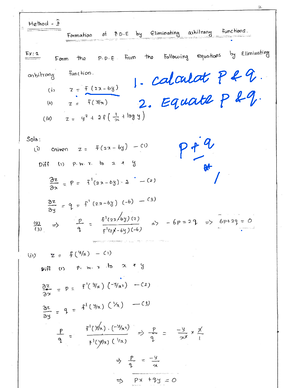 Method - 2
Formation of P.D.E by Eliminating arbitrary functions.
Ex:2 Form the P.D.E from the following equations by Eliminating
arbitrary function.
(i) z = f(2x-6y)
(ii) z = f(y/x)
(iii) z = y² + 2f(1/x + log y)
1. calculat P & q.
2. Equate P & q.
Soln:
(i) Given z = f(2x-6y) — (1)
Diff (1) p.w.r. to x & y
∂z/∂x = p = f'(2x-6y)·2 — (2)
∂z/∂y = q = f'(2x-6y)(-6) — (3)
(2)/(3) ⇒ p/q = f'(2x-6y)(2)/f'(2x-6y)(-6) ⇒ -6p=2q ⇒ 6p+2q=0
P + q
(ii) z = f(y/x) — (1)
Diff (1) p.w.r to x & y
∂z/∂x = p = f'(y/x)(-y/x²) — (2)
∂z/∂y = q = f'(y/x)(1/x) — (3)
p/q = f'(y/x)·(-y/x²)/f'(y/x)(1/x) ⇒ p/q = -y/x² × x/1
⇒ p/q = -y/x
⇒ px + qy = 0